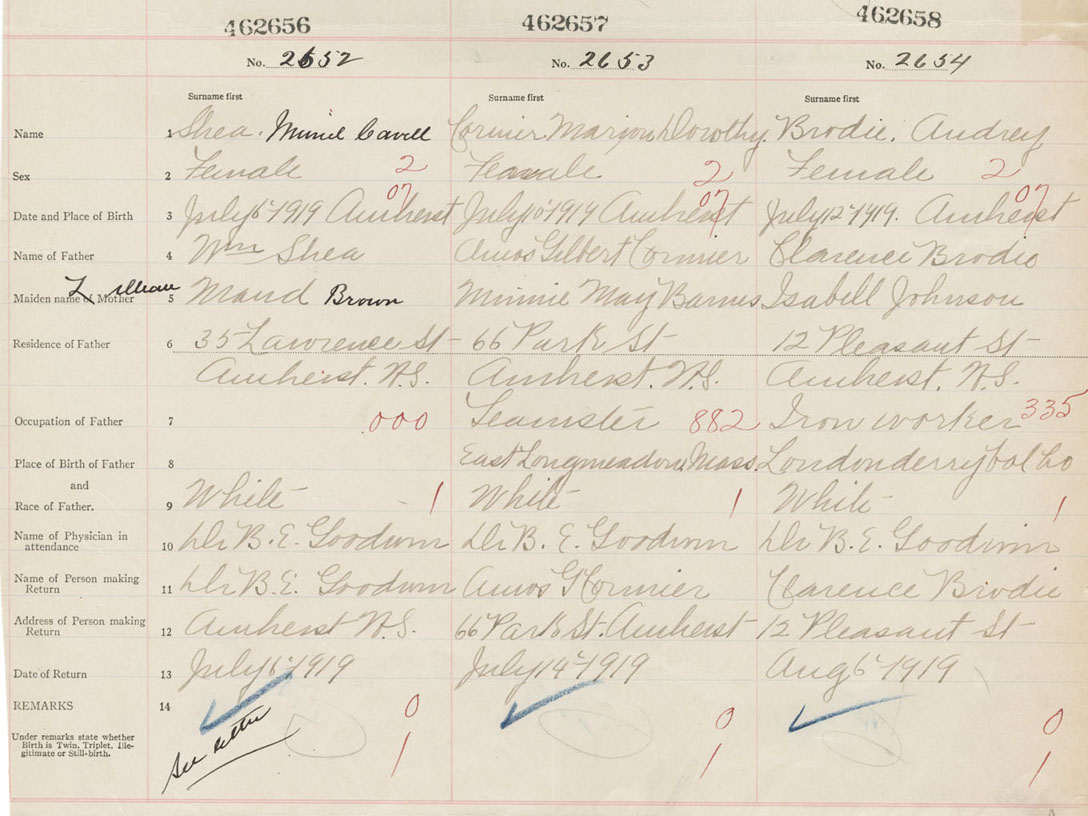 462656 462657 462658
No. 2652 No. 2653 No. 2654
Surname first Surname first Surname first
Name 1 Shea. Muriel Cavell Cormier Marion Dorothy. Brodie. Audrey
Sex 2 Female 2 Female 2 Female 2
07 07 07
Date and Place of Birth 3 July 6 1919 Amherst July 10 1919 Amherst July 12 1919. Amherst
Name of Father 4 Wm Shea Amos Gilbert Cormier Clarence Brodie
Lillian
Maiden name of Mother 5 Maud Brown Minnie May Barnes Isabell Johnson
Residence of Father 6 35 Lawrence St 66 Park St 12 Pleasant St
Amherst. N.S. Amherst. N.S. Amherst. N.S.
Occupation of Father 7 000 Teamster 882 Iron worker 335
Place of Birth of Father 8 East Longmeadow, Mass. Londonderry Col Co
and
Race of Father. 9 White 1 White 1 White 1
Name of Physician in
attendance 10 Dr B. E. Goodwin Dr B. E. Goodwin Dr B. E. Goodwin
Name of Person making
Return 11 Dr B. E. Goodwin Amos G Cormier Clarence Brodie
Address of Person making
Return 12 Amherst N.S. 66 Park St. Amherst 12 Pleasant St
Date of Return 13 July 6 1919 July 14 1919 Aug 6 1919
REMARKS 14 0 0 0
Under remarks state whether
Birth is Twin, Triplet, Ille-
gitimate or Still-birth. see letter 1 1 1